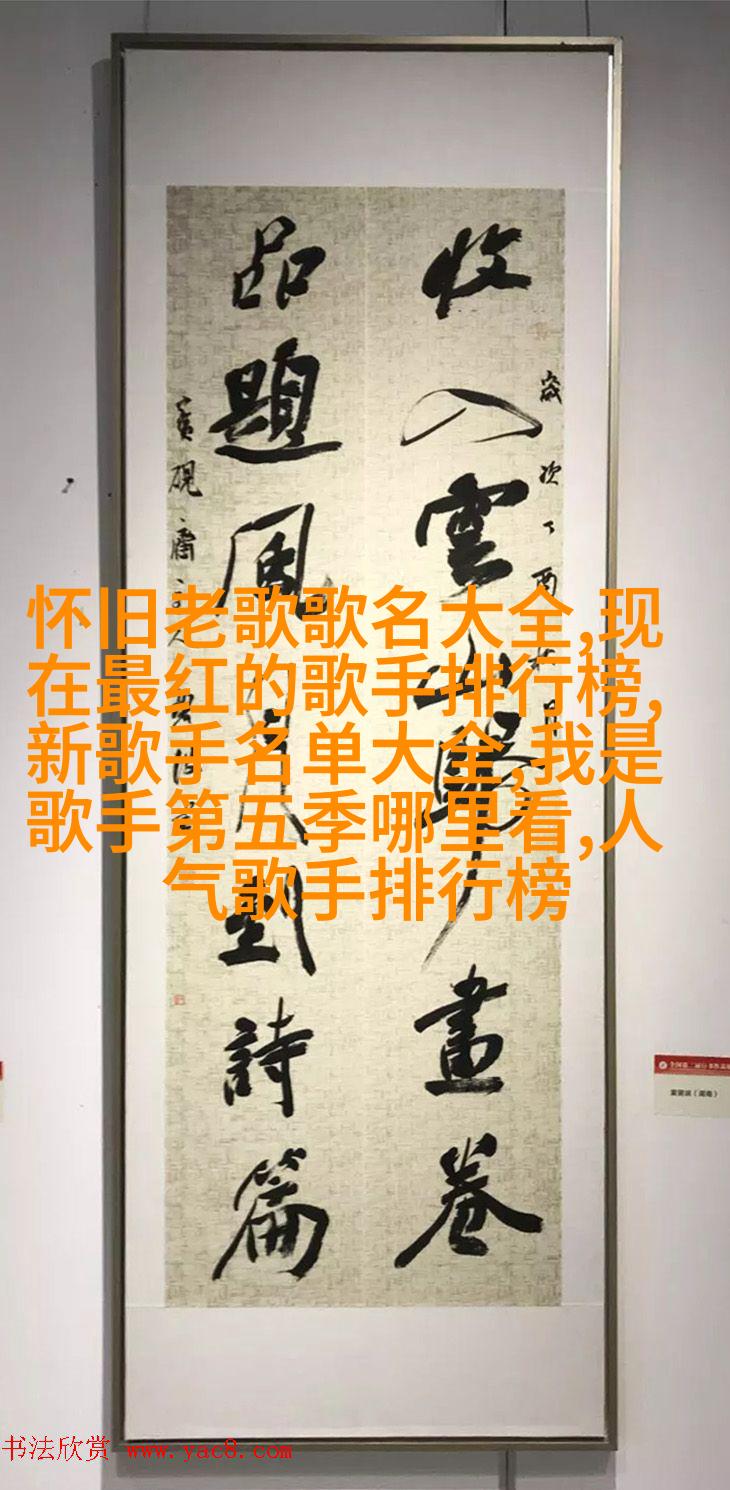 收入雲山歸畫卷
品題風月到詩篇
歲次丁酉秋月
怀旧老歌歌名大全,现
在最红的歌手排行榜,
新歌手名单大全,我是
歌手第五季哪里看,人
气歌手排行榜
书法欣赏 www.yac8.com